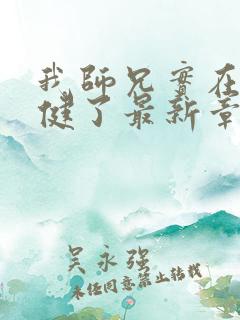 我师兄實在
健了最新章
吴永强
未经同意禁止转载